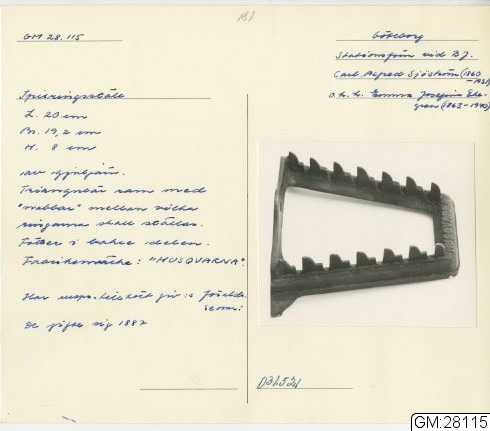 GM 28.115
Göteborg
Stationsfrun vid BJ.
Carl Alfred Sjöström (1860
o. h. h. Emma Josefina Eke-
gren (1863-1940)
Spisringsställ
L. 20 cm
Br. 19,2 cm
H. 8 cm
av gjutjärn.
Triangulär ram med
"nabbar" mellan vilka
ringarna skall ställas.
Fötter i bakre delen.
Fabriksmärke: "HUSQVARNA".
Har urspr. tillhört giv:s föräld-
De gifte sig 1887
HUSQVARNA
GM:28115